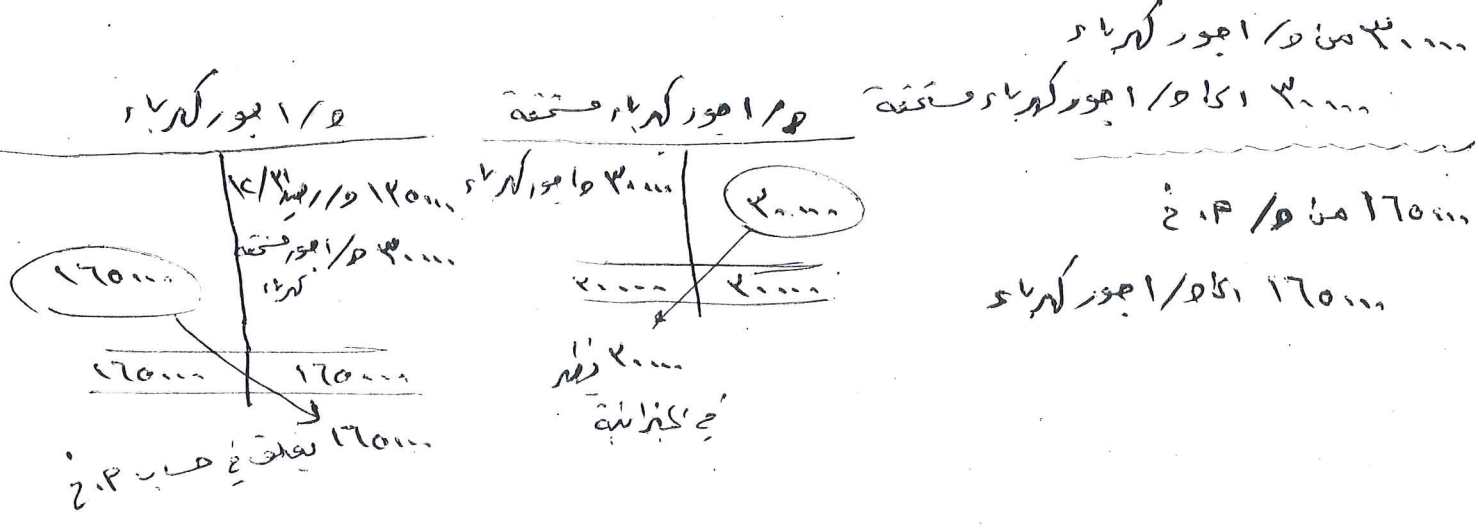 ٣٠٠٠٠ من ح/ اجور كهرباء
٣٠٠٠٠ الى ح/ اجور كهرباء مستحقة
١٦٥٠٠٠ من ح/ م.خ
١٦٥٠٠٠ الى ح/ اجور كهرباء
ح/ اجور كهرباء مستحقة
٣٠٠٠٠
٣٠٠٠٠ ح/ اجور كهرباء
٣٠٠٠٠ ٣٠٠٠٠
٣٠٠٠٠ يظهر
في الميزانية
ح/ اجور كهرباء
١٣٥٠٠٠ ح/ رصيد ١٢/٣١
٣٠٠٠٠ ح/ اجور مستحقة
كهرباء
١٦٥٠٠٠
١٦٥٠٠٠ ١٦٥٠٠٠
١٦٥٠٠٠ يغلق في حساب م.خ